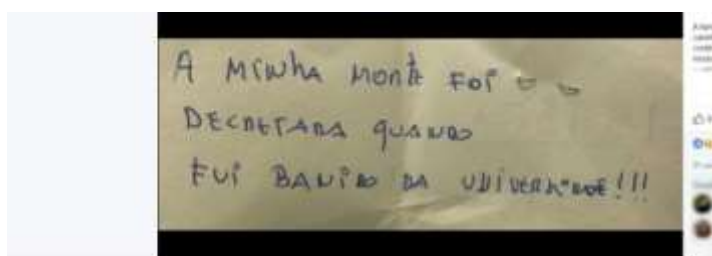 A MINHA MORTE FOI
DECRETADA QUANDO
FUI BANIDO DA UNIVERSIDADE!!!